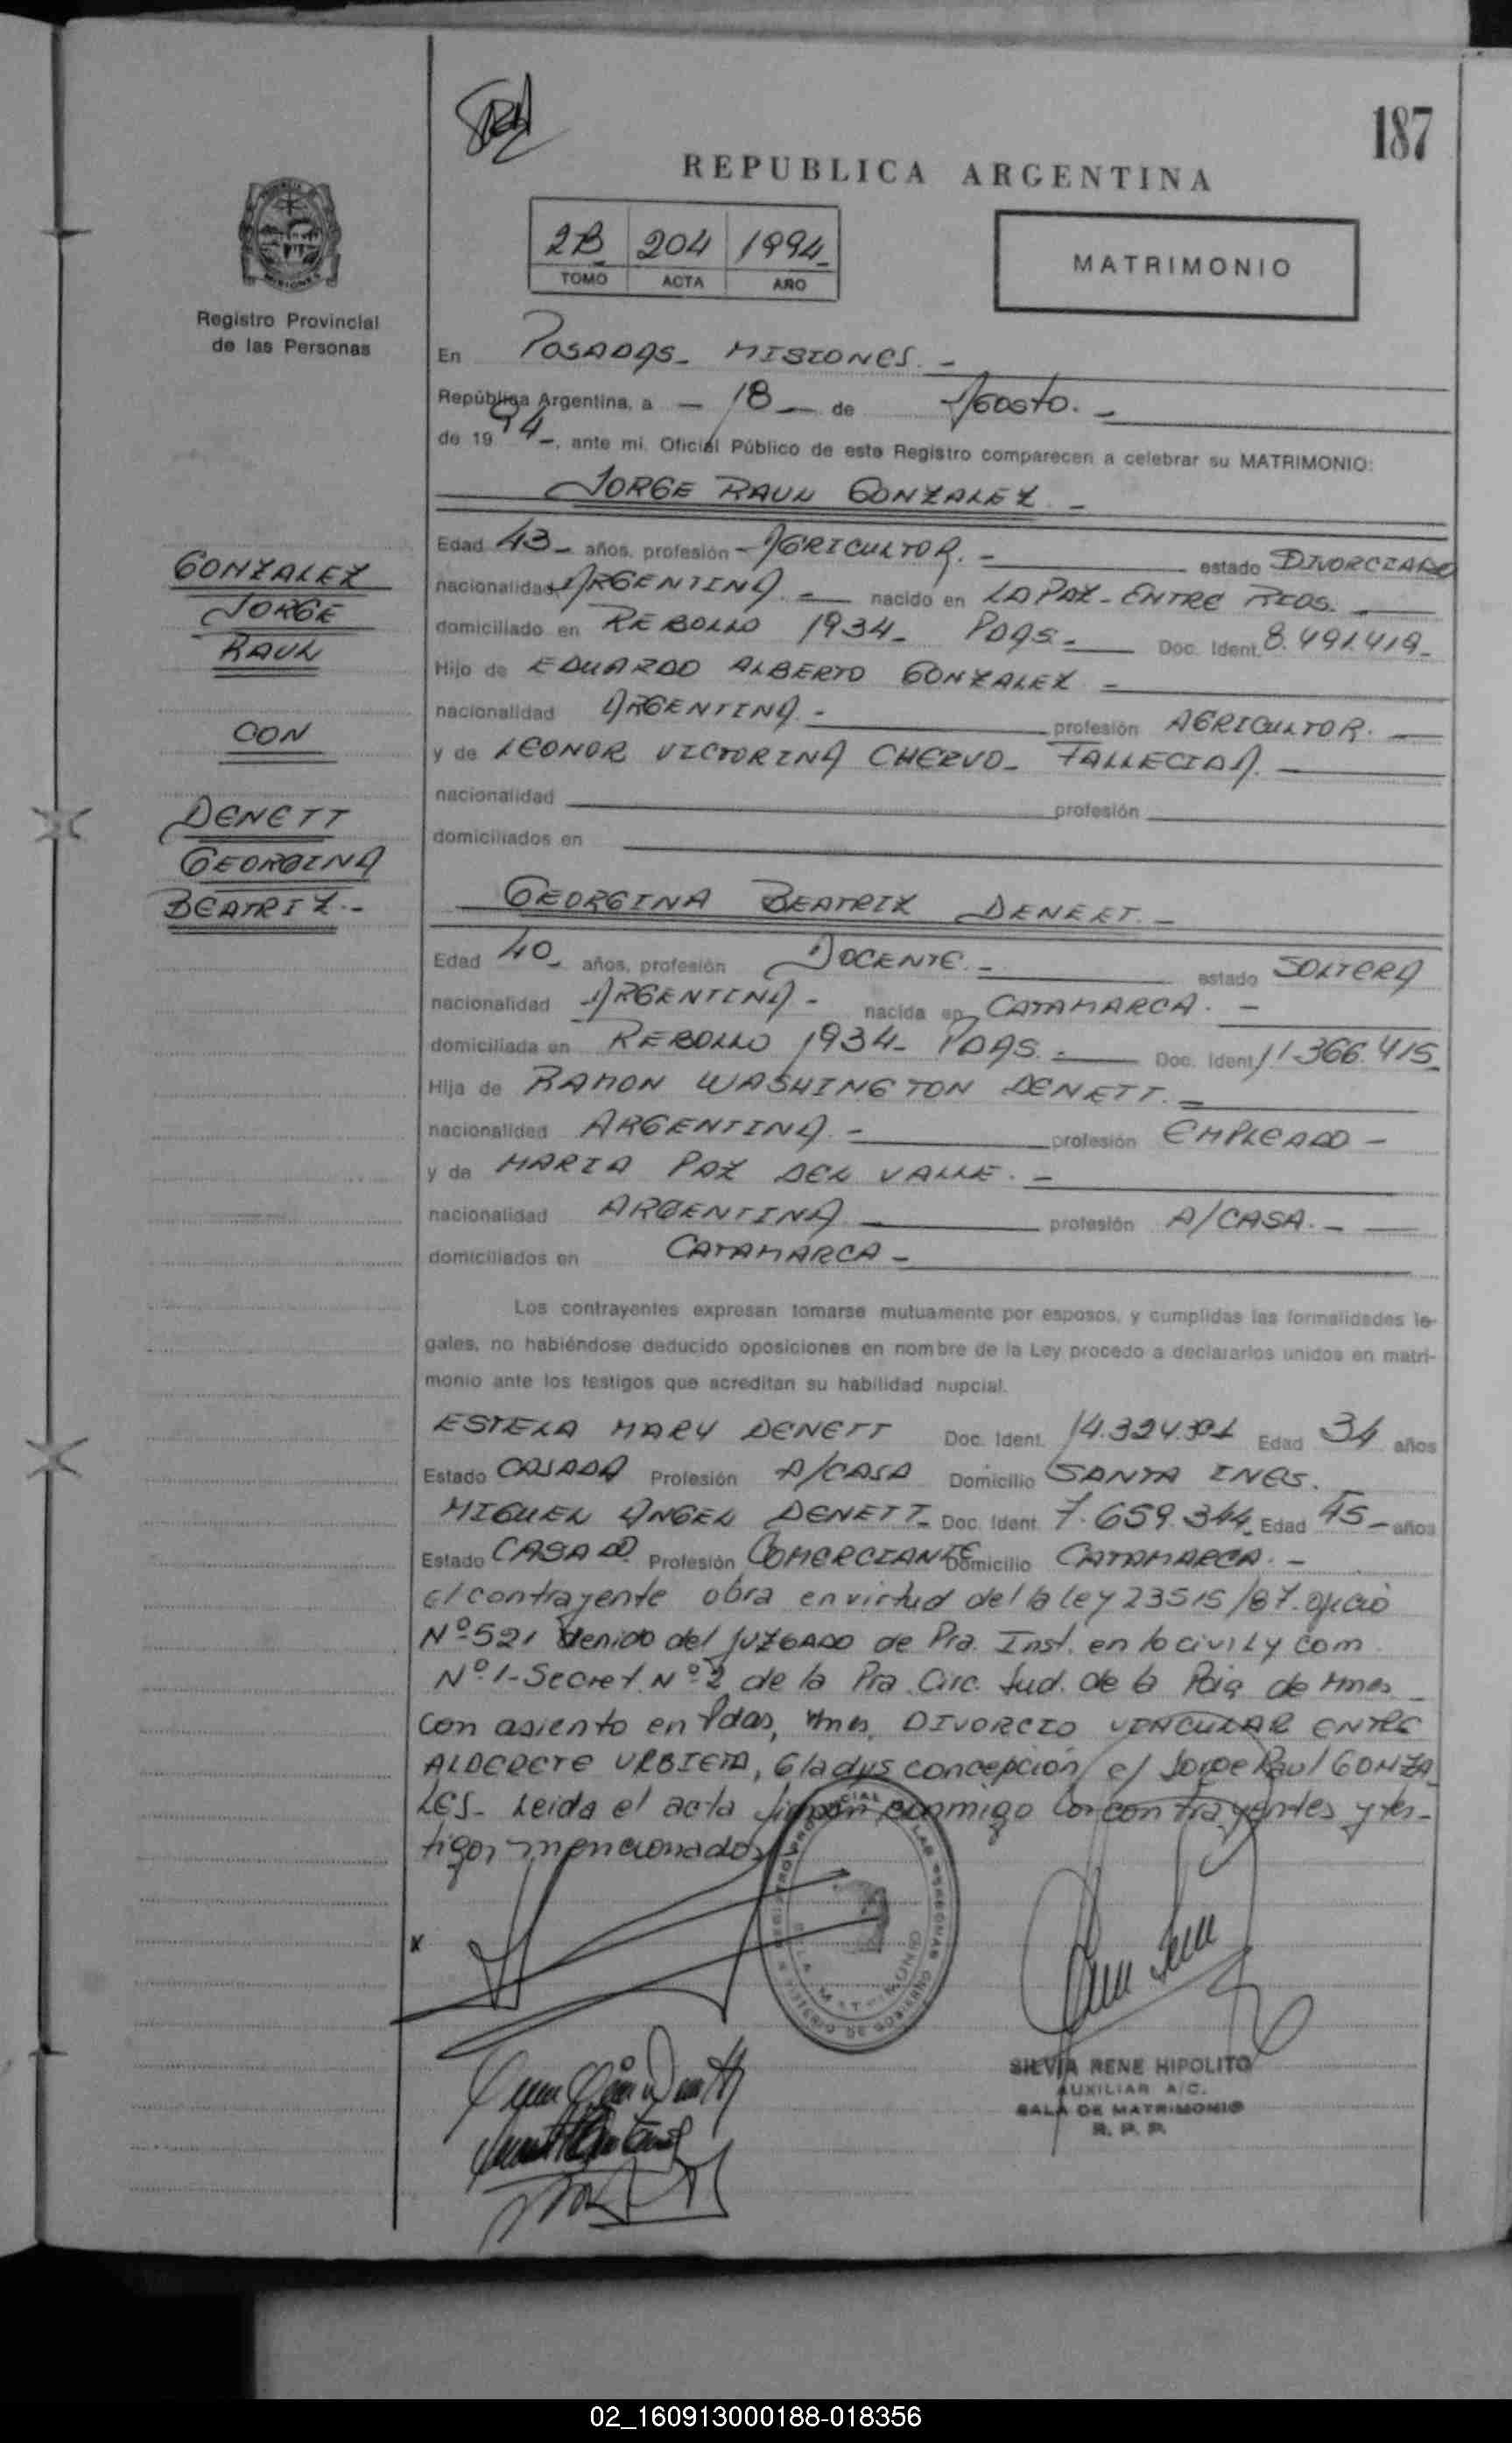 187
REPUBLICA ARGENTINA
2B 204 1994
TOMO ACTA AÑO
MATRIMONIO
Registro Provincial
de las Personas
En POSADAS - MISIONES. -
República Argentina, a - 18 - de Agosto. -
de 1994 -, ante mi, Oficial Público de este Registro comparecen a celebrar su MATRIMONIO:
JORGE RAUL GONZALEZ. -
GONZALEZ
JORGE
RAUL
CON
DENETT
GEORGINA
BEATRIZ. -
Edad 43 - años, profesión - AGRICULTOR. - estado DIVORCIADO
nacionalidad ARGENTINA. - nacido en LA PAZ - ENTRE RIOS. -
domiciliado en REBOLLO 1934 - PDAS. - Doc. Ident. 8.491.419 -
Hijo de EDUARDO ALBERTO GONZALEZ -
nacionalidad ARGENTINA. - profesión AGRICULTOR. -
y de LEONOR VICTORINA CHERVO - FALLECIDA. -
nacionalidad profesión
domiciliados en
GEORGINA BEATRIZ DENETT. -
Edad 40 - años, profesión DOCENTE. - estado SOLTERA
nacionalidad ARGENTINA - nacida en CATAMARCA. -
domiciliada en REBOLLO 1934 - PDAS. - Doc. Ident. 11.366.415 -
Hija de RAMON WASHINGTON DENETT. -
nacionalidad ARGENTINA. - profesión EMPLEADO -
y de MARIA PAZ DEL VALLE. -
nacionalidad ARGENTINA profesión A/CASA. -
domiciliados en CATAMARCA -
Los contrayentes expresan tomarse mutuamente por esposos, y cumplidas las formalidades le-
gales, no habiéndose deducido oposiciones en nombre de la Ley procedo a declararlos unidos en matri-
monio ante los testigos que acreditan su habilidad nupcial.
ESTELA MARY DENETT Doc. Ident. Edad 34 años
Estado CASADA Profesión A/CASA Domicilio SANTA INES.
MIGUEL ANGEL DENETT - Doc. Ident. 7.659.344 - Edad 45 - años
Estado CASADO Profesión COMERCIANTE Domicilio CATAMARCA. -
el contrayente obra en virtud de la ley 23515/87. oficio
Nº 521 venido del JUZGADO de Pra. Inst. en lo civil y com
Nº 1 - Secret. Nº 2 de la Pra Circ. Jud. de la Pcia de Mnes -
con asiento en Pdas, Mnes, DIVORCIO VINCULAR ENTRE
ALDERETE URBIETA, Gladys concepción c/ Jorge Raul GONZA-
LES - Leida el acta firman conmigo los contrayentes y tes-
tigos mencionados
x
SALA MATRIMONIO
SILVIA RENE HIPOLITO
AUXILIAR A/C.
SALA DE MATRIMONIO
R. P. P.
02_160913000188-018356